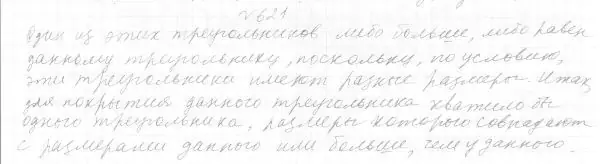 №621
Один из этих треугольников либо больше, либо равен
данному треугольнику, поскольку, по условию,
эти треугольники имеют разные размеры. Итак,
для покрытия данного треугольника хватило бы
одного треугольника, размеры которого совпадают
с размерами данного или больше, чем у данного.